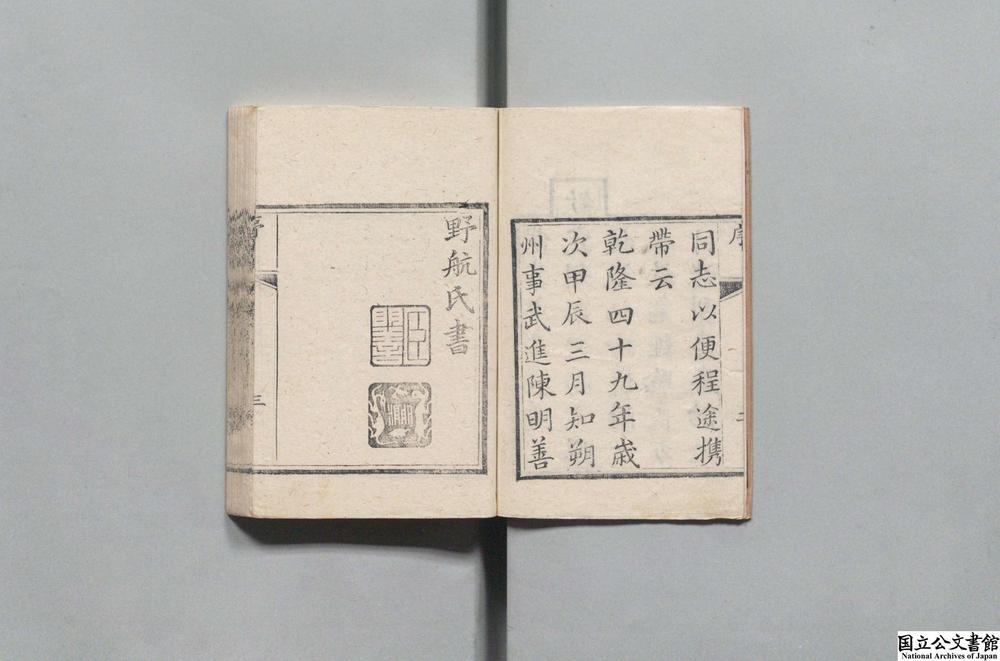 同志以便程途携
帶云
乾隆四十九年歲
次甲辰三月知朔
州事武進陳明善
野航氏書
序
三
国立公文書館
National Archives of Japan